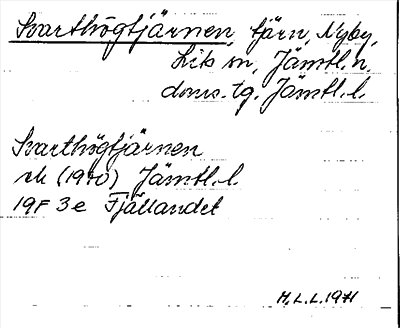 Svarthögtjärnen, tjärn, Nyby,
Lits sn, Jämtl. n.
doms. tg, Jämtl. l.
Svarthögtjärnen
rk (1970) Jämtl. l.
19F 3e Fjällandet
H.L.L. 1971